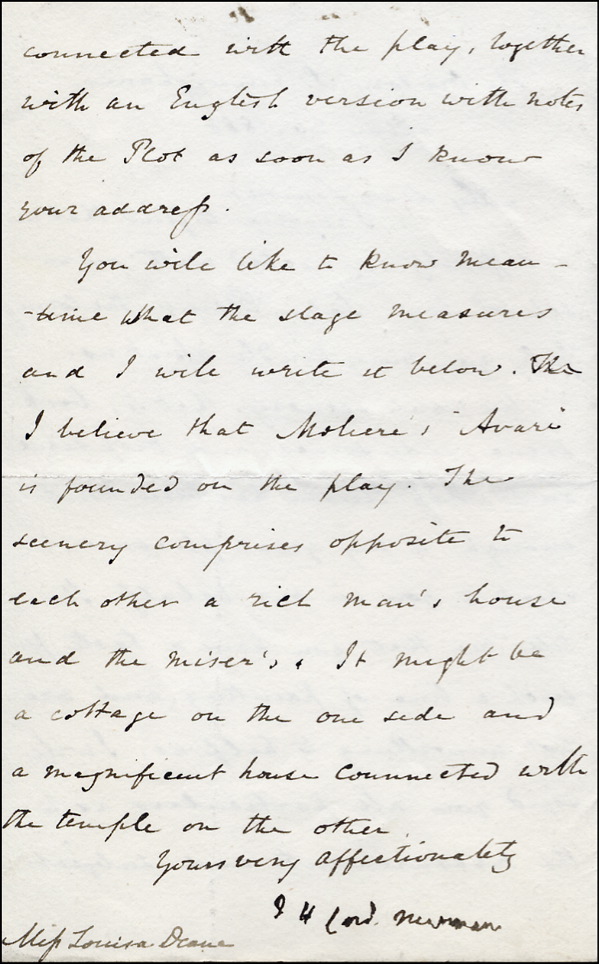 connected with the play, together
with an English version with notes
of the Plot as soon as I know
your address.
You will like to know mean-
-time what the stage measures
and I will write it below. The
I believe that Moliere's "Avare"
is founded on the play. The
scenery comprises opposite to
each other a rich man's house
and the miser's. It might be
a cottage on the one side and
a magnificent house connected with
the temple on the other.
Yours very affectionately
J H Card. Newman
Miss Louisa Deane